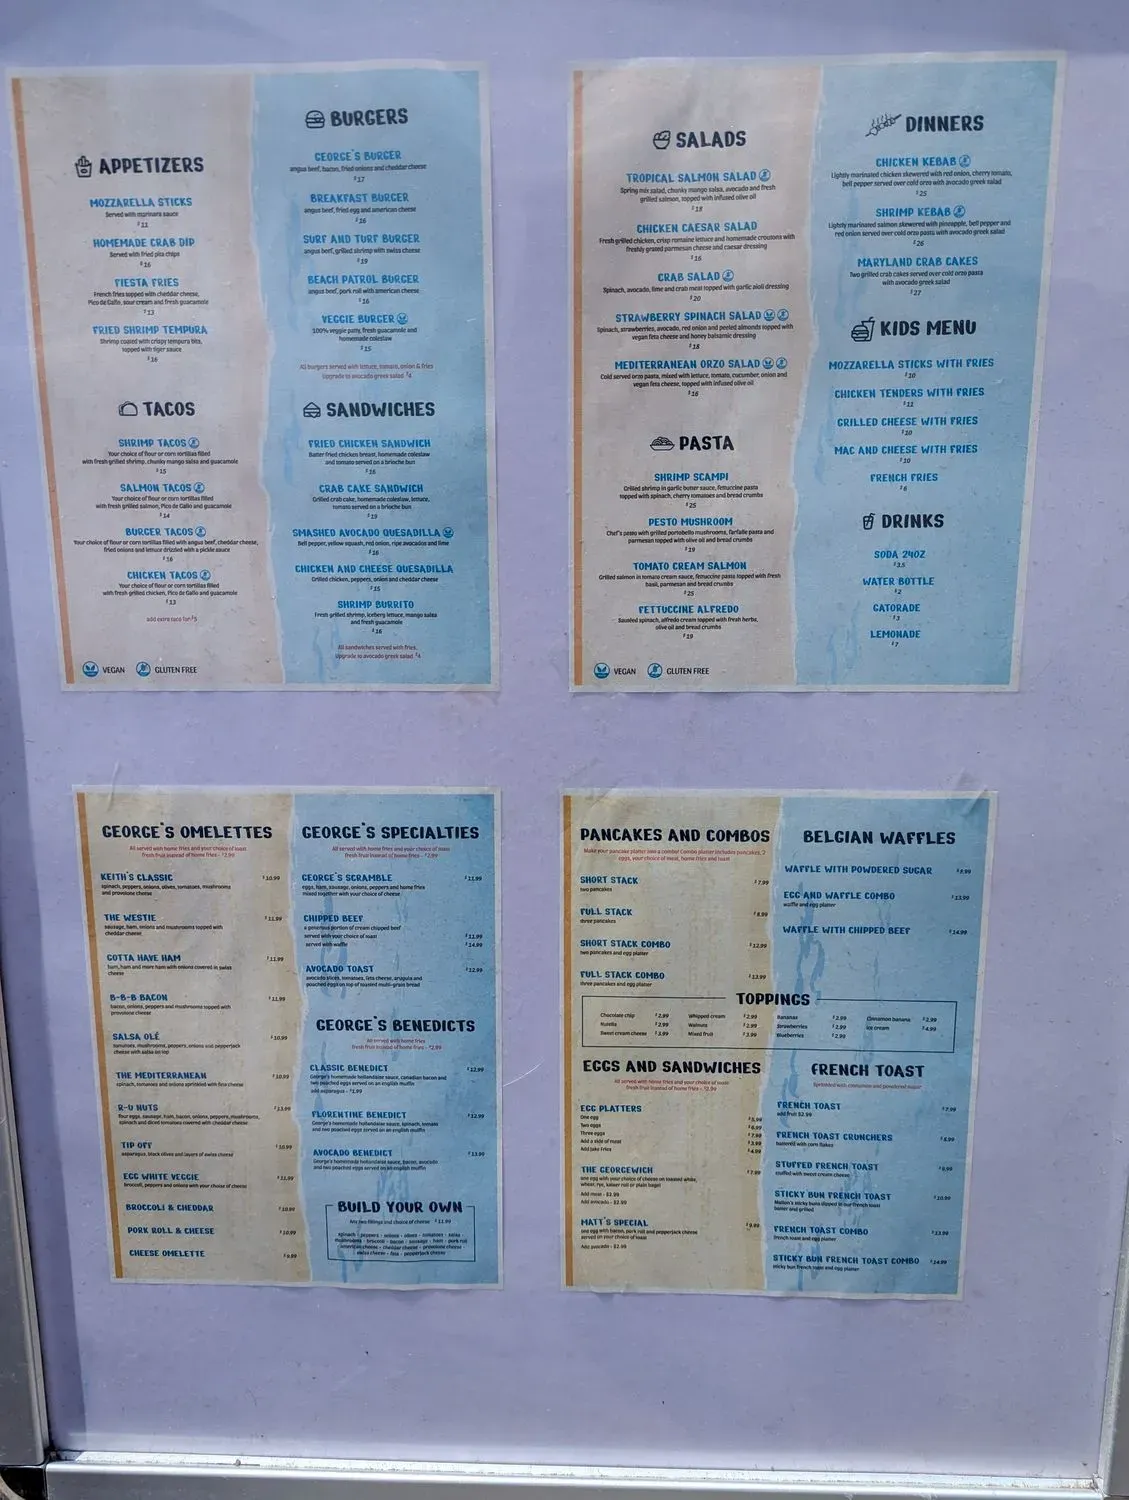 APPETIZERS
MOZZARELLA STICKS
Served with marinara sauce
$11
HOMEMADE CRAB DIP
Served with fried pita chips
$16
FIESTA FRIES
French fries topped with cheddar cheese,
Pico de Gallo, sour cream and fresh guacamole
$13
FRIED SHRIMP TEMPURA
Shrimp coated with crispy tempura bits,
topped with tiger sauce
$16
TACOS
SHRIMP TACOS
Your choice of flour or corn tortillas filled
with fresh grilled shrimp, chunky mango salsa and guacamole
$15
SALMON TACOS
Your choice of flour or corn tortillas filled
with fresh grilled salmon, Pico de Gallo and guacamole
$14
BURGER TACOS
Your choice of flour or corn tortillas filled with angus beef, cheddar cheese,
fried onions and lettuce drizzled with a pickle sauce
$16
CHICKEN TACOS
Your choice of flour or corn tortillas filled
with fresh grilled chicken, Pico de Gallo and guacamole
$13
add extra taco for $5
VEGAN GLUTEN FREE
BURGERS
GEORGE'S BURGER
angus beef, bacon, fried onions and cheddar cheese
$17
BREAKFAST BURGER
angus beef, fried egg and american cheese
$16
SURF AND TURF BURGER
angus beef, grilled shrimp with swiss cheese
$19
BEACH PATROL BURGER
angus beef, pork roll with american cheese
$16
VEGGIE BURGER
100% veggie patty, fresh guacamole and
homemade coleslaw
$15
All burgers served with lettuce, tomato, onion & fries
Upgrade to avocado greek salad $4
SANDWICHES
FRIED CHICKEN SANDWICH
Batter fried chicken breast, homemade coleslaw
and tomato served on a brioche bun
$16
CRAB CAKE SANDWICH
Grilled crab cake, homemade coleslaw, lettuce,
tomato served on a brioche bun
$19
SMASHED AVOCADO QUESADILLA
Bell pepper, yellow squash, red onion, ripe avocados and lime
$16
CHICKEN AND CHEESE QUESADILLA
Grilled chicken, peppers, onion and cheddar cheese
$15
SHRIMP BURRITO
Fresh grilled shrimp, iceberg lettuce, mango salsa
and fresh guacamole
$16
All sandwiches served with fries,
Upgrade to avocado greek salad $4
SALADS
TROPICAL SALMON SALAD
Spring mix salad, chunky mango salsa, avocado and fresh
grilled salmon, topped with infused olive oil
$18
CHICKEN CAESAR SALAD
Fresh grilled chicken, crisp romaine lettuce and homemade croutons with
freshly grated parmesan cheese and caesar dressing
$16
CRAB SALAD
Spinach, avocado, lime and crab meat topped with garlic aioli dressing
$20
STRAWBERRY SPINACH SALAD
Spinach, strawberries, avocado, red onion and peeled almonds topped with
vegan feta cheese and honey balsamic dressing
$18
MEDITERRANEAN ORZO SALAD
Cold served orzo pasta, mixed with lettuce, tomato, cucumber, onion and
vegan feta cheese, topped with infused olive oil
$16
PASTA
SHRIMP SCAMPI
Grilled shrimp in garlic butter sauce, fettuccine pasta
topped with spinach, cherry tomatoes and bread crumbs
$25
PESTO MUSHROOM
Chef's pesto with grilled portobello mushrooms, farfalle pasta and
parmesan topped with olive oil and bread crumbs
$19
TOMATO CREAM SALMON
Grilled salmon in tomato cream sauce, fettuccine pasta topped with fresh
basil, parmesan and bread crumbs
$25
FETTUCCINE ALFREDO
Sauteed spinach, alfredo cream topped with fresh herbs,
olive oil and bread crumbs
$19
VEGAN GLUTEN FREE
DINNERS
CHICKEN KEBAB
Lightly marinated chicken skewered with red onion, cherry tomato,
bell pepper served over cold orzo with avocado greek salad
$25
SHRIMP KEBAB
Lightly marinated salmon skewered with pineapple, bell pepper and
red onion served over cold orzo pasta with avocado greek salad
$26
MARYLAND CRAB CAKES
Two grilled crab cakes served over cold orzo pasta
with avocado greek salad
$27
KIDS MENU
MOZZARELLA STICKS WITH FRIES
$10
CHICKEN TENDERS WITH FRIES
$11
GRILLED CHEESE WITH FRIES
$10
MAC AND CHEESE WITH FRIES
$10
FRENCH FRIES
$6
DRINKS
SODA 24OZ
$3.5
WATER BOTTLE
$2
GATORADE
$3
LEMONADE
$7
GEORGE'S OMELETTES
All served with home fries and your choice of toast
fresh fruit instead of home fries - $2.99
KEITH'S CLASSIC $10.99
spinach, peppers, onions, olives, tomatoes, mushrooms
and provolone cheese
THE WESTIE $11.99
sausage, ham, onions and mushrooms topped with
cheddar cheese
GOTTA HAVE HAM $11.99
ham, ham and more ham with onions covered in swiss
cheese
B-B-B BACON $11.99
bacon, onions, peppers and mushrooms topped with
provolone cheese
SALSA OLÉ $10.99
tomatoes, mushrooms, peppers, onions and pepperjack
cheese with salsa on top
THE MEDITERRANEAN $10.99
spinach, tomatoes and onions sprinkled with feta cheese
R-U NUTS $13.99
four eggs, sausage, ham, bacon, onions, peppers, mushrooms,
spinach and diced tomatoes covered with cheddar cheese
TIP OFF $10.99
asparagus, black olives and layers of swiss cheese
EGG WHITE VEGGIE $11.99
broccoli, peppers and onions with your choice of cheese
BROCCOLI & CHEDDAR $10.99
PORK ROLL & CHEESE $10.99
CHEESE OMELETTE $9.99
GEORGE'S SPECIALTIES
All served with home fries and your choice of toast
fresh fruit instead of home fries - $2.99
GEORGE'S SCRAMBLE $11.99
eggs, ham, sausage, onions, peppers and home fries
mixed together with your choice of cheese
CHIPPED BEEF
a generous portion of cream chipped beef
served with your choice of toast $11.99
served with waffle $14.99
AVOCADO TOAST $12.99
avocado slices, tomatoes, feta cheese, arugula and
poached eggs on top of toasted multi-grain bread
GEORGE'S BENEDICTS
All served with home fries
fresh fruit instead of home fries - $2.99
CLASSIC BENEDICT $12.99
George's homemade hollandaise sauce, canadian bacon and
two poached eggs served on an english muffin
add asparagus - $1.99
FLORENTINE BENEDICT $12.99
George's homemade hollandaise sauce, spinach, tomato
and two poached eggs served on an english muffin
AVOCADO BENEDICT $13.99
George's homemade hollandaise sauce, bacon, avocado
and two poached eggs served on an english muffin
BUILD YOUR OWN
Any two fillings and choice of cheese $11.99
spinach - peppers - onions - olives - tomatoes - salsa
mushrooms - broccoli - bacon - sausage - ham - pork roll
american cheese - cheddar cheese - provolone cheese -
swiss cheese - feta - pepperjack cheese
PANCAKES AND COMBOS
Make your pancake platter into a combo! Combo platter includes pancakes, 2
eggs, your choice of meat, home fries and toast
SHORT STACK $7.99
two pancakes
FULL STACK $8.99
three pancakes
SHORT STACK COMBO $12.99
two pancakes and egg platter
FULL STACK COMBO $13.99
three pancakes and egg platter
BELGIAN WAFFLES
WAFFLE WITH POWDERED SUGAR
EGG AND WAFFLE COMBO $13.99
waffle and egg platter
WAFFLE WITH CHIPPED BEEF $14.99
TOPPINGS
Chocolate chip $2.99 Whipped cream $2.99 Bananas $2.99 Cinnamon banana $2.99
Nutella $2.99 Walnuts $2.99 Strawberries $2.99 Ice cream $4.99
Sweet cream cheese $3.99 Mixed fruit $3.99 Blueberries $2.99
EGGS AND SANDWICHES
All served with home fries and your choice of toast
fresh fruit instead of home fries - $2.99
EGG PLATTERS
One egg $5.99
Two eggs $6.99
Three eggs $7.99
Add a side of meat $3.99
Add fries $4.99
THE GEORGEWICH $7.99
one egg with your choice of cheese on toasted white,
wheat, rye, kaiser roll or plain bagel
Add meat - $2.99
Add avocado - $2.99
MATT'S SPECIAL $9.99
one egg with bacon, pork roll and pepperjack cheese
served on your choice of toast
Add avocado - $2.99
FRENCH TOAST
Sprinkled with cinnamon and powdered sugar
FRENCH TOAST $7.99
add fruit $2.99
FRENCH TOAST CRUNCHERS $8.99
battered with corn flakes
STUFFED FRENCH TOAST $9.99
stuffed with sweet cream cheese
STICKY BUN FRENCH TOAST $10.99
sticky buns dipped in our french toast
batter and grilled
FRENCH TOAST COMBO $13.99
french toast and egg platter
STICKY BUN FRENCH TOAST COMBO $14.99
sticky bun french toast and egg platter